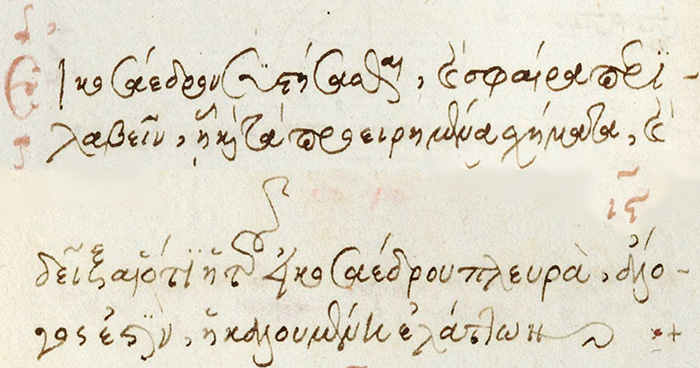 Εἰκοσάεδρον συστήσασθαι, καὶ σφαίρα περι-
λαβεῖν, ἧ καὶ τὰ προειρημένα σχήματα, καὶ
ις
δεῖξαι ὅτι ἡ τοῦ εἰκοσαέδρου πλευρὰ, ἄλο-
γος ἐστὶν, ἡ καλουμένη ἐλάττων